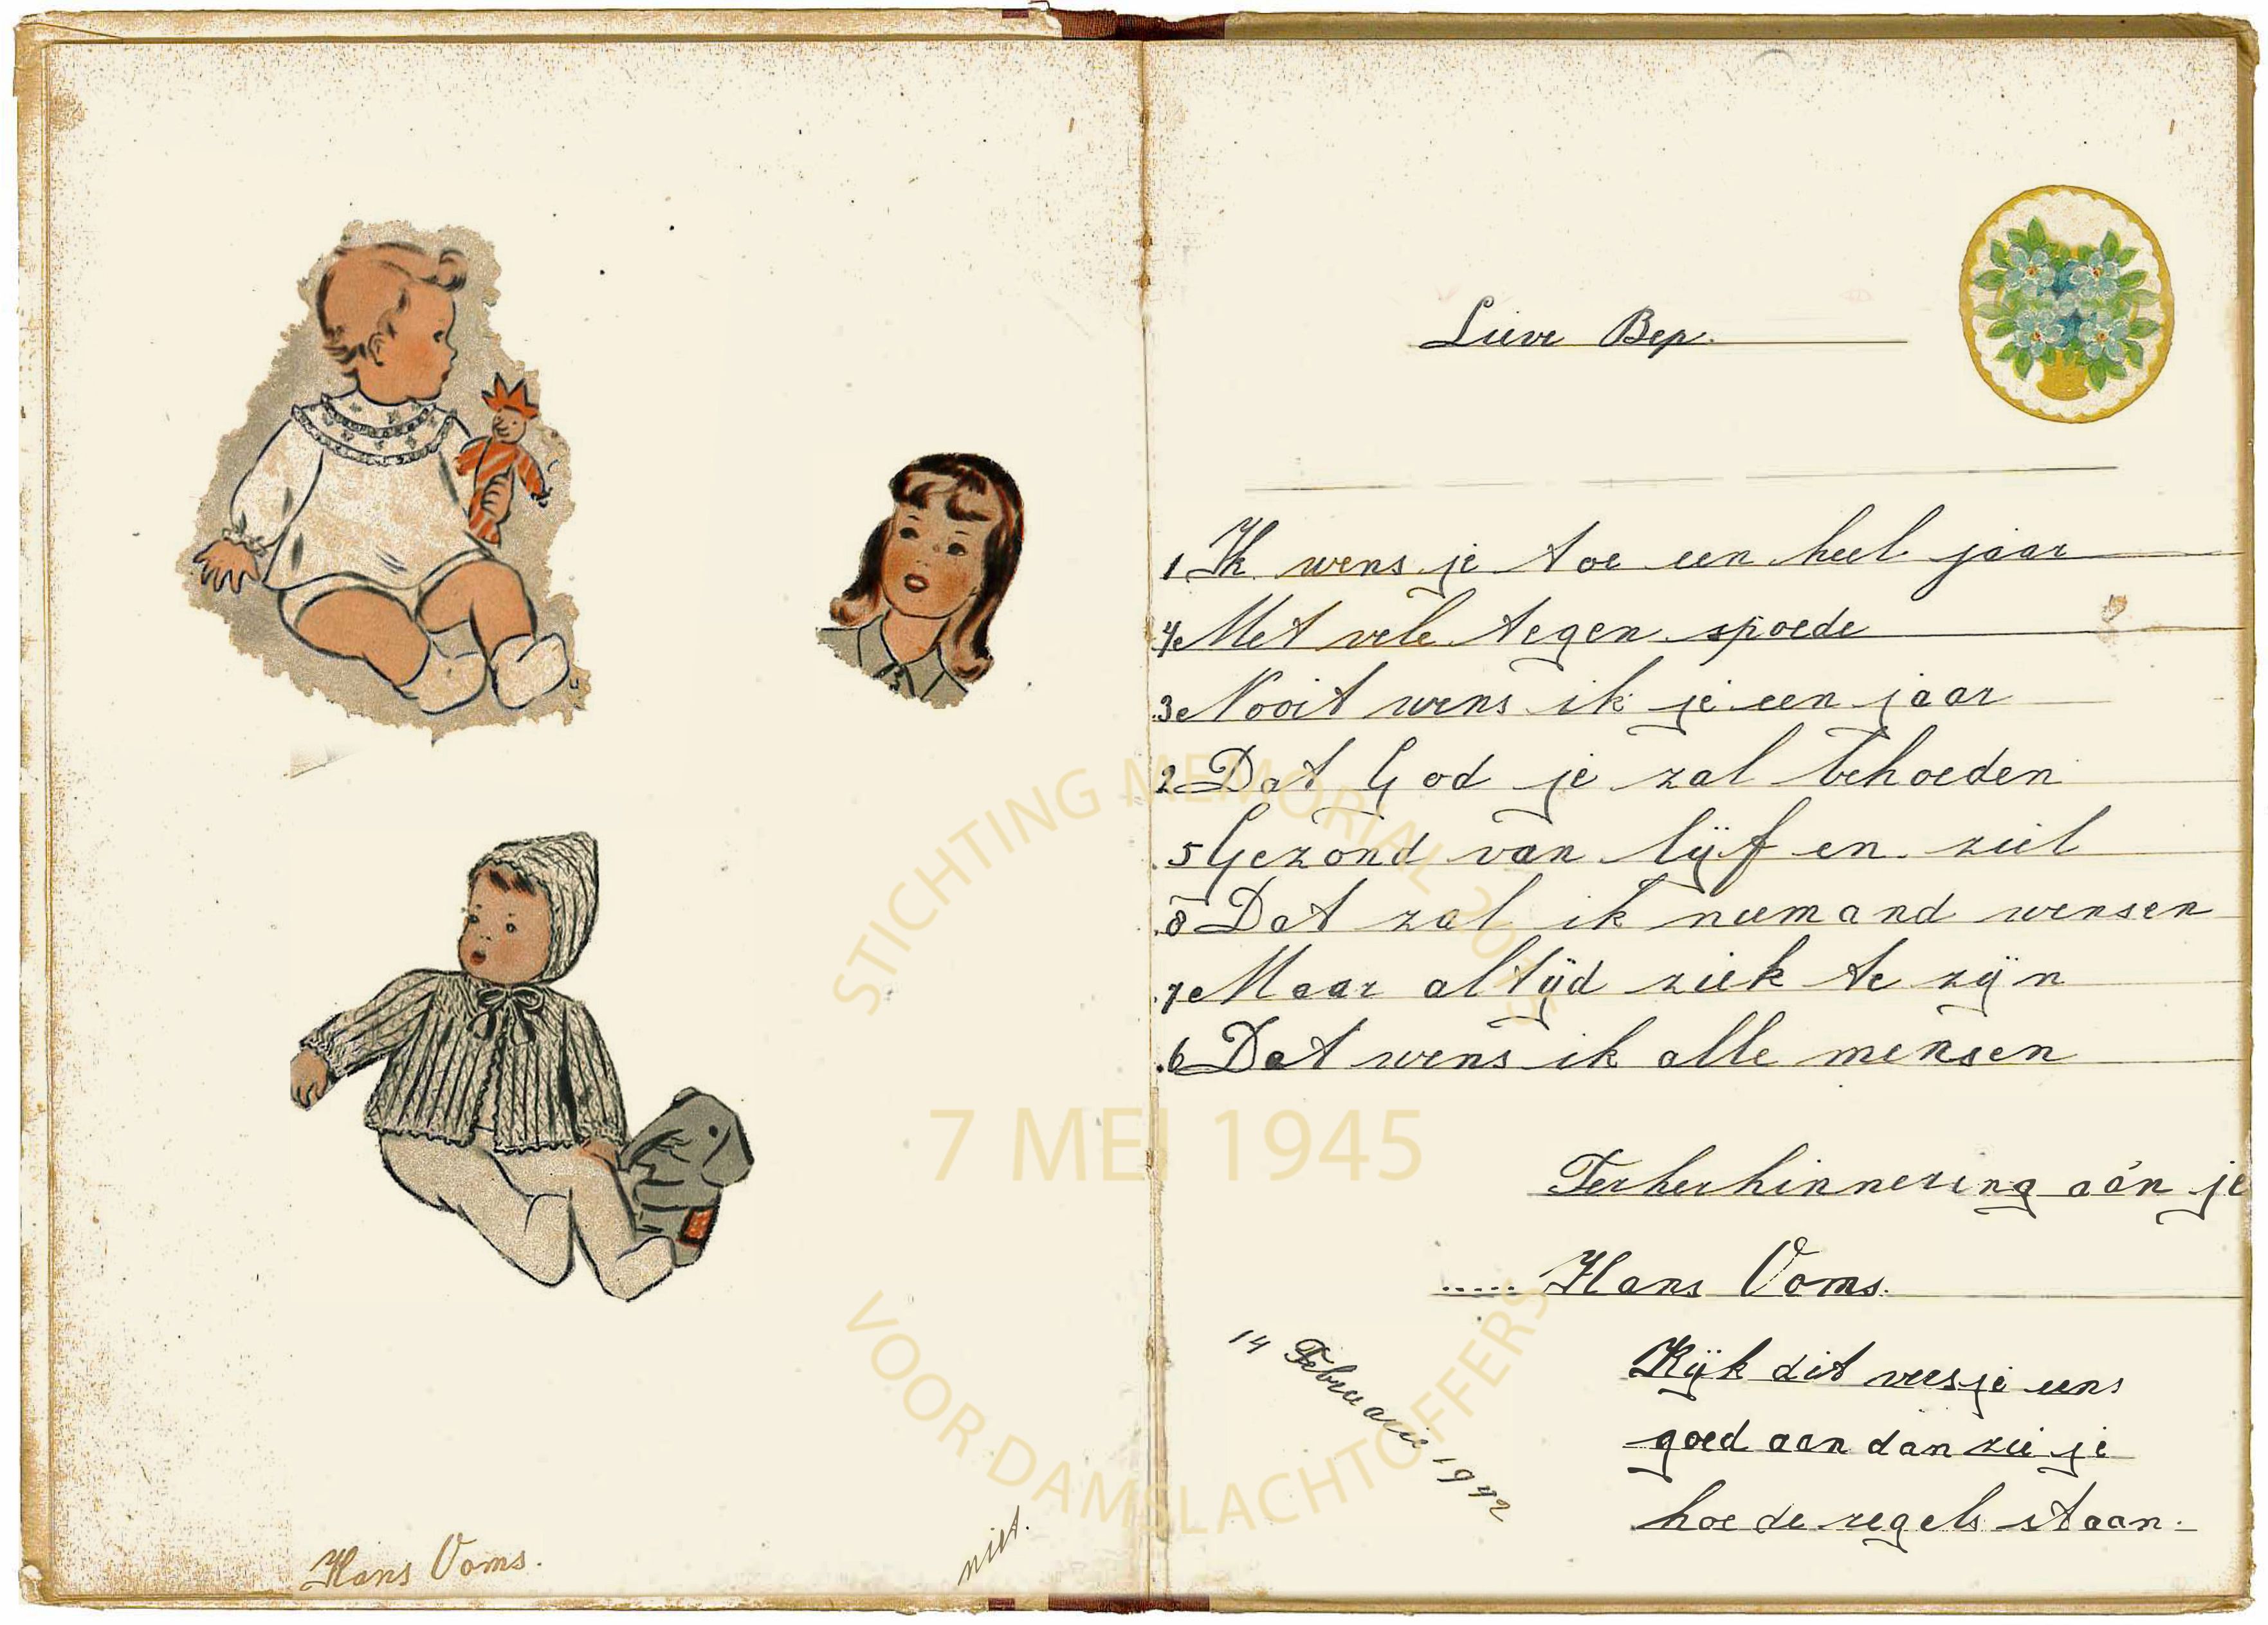 Hans Ooms.
niet.
Lieve Bep.
1 Ik wens je toe een heel jaar
4e Met vele tegen spoede
3e Nooit wens ik je een jaar
2 Dat God je zal behoeden
5 Gezond van lijf en ziel
8 Dat zal ik niemand wensen
7e Maar altijd ziek te zijn
6 Dat wens ik alle mensen
Terherhinnering aán je
..... Hans Ooms.
14 Februarie 1942
Kijk dit veesje eens
goed aan dan zie je
hoe de regels staan.
STICHTING MEMORIAL 2015
7 MEI 1945
VOOR DAMSLACHTOFFERS